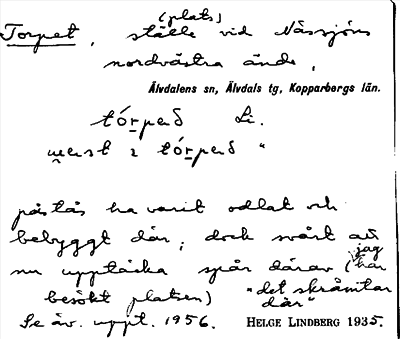 (plats)
Torpet, ställe vid Nässjöns
nordvästra ände,
Älvdalens sn, Älvdals tg, Kopparbergs län.
tórpəð Li.
ı tórpəð "
påstås ha varit odlat och
bebyggt där; dock svårt att
jag
nu upptäcka spår därav (har
besökt platsen) "det skrämtar
där"
Se äv. uppt. 1956. HELGE LINDBERG 1935.